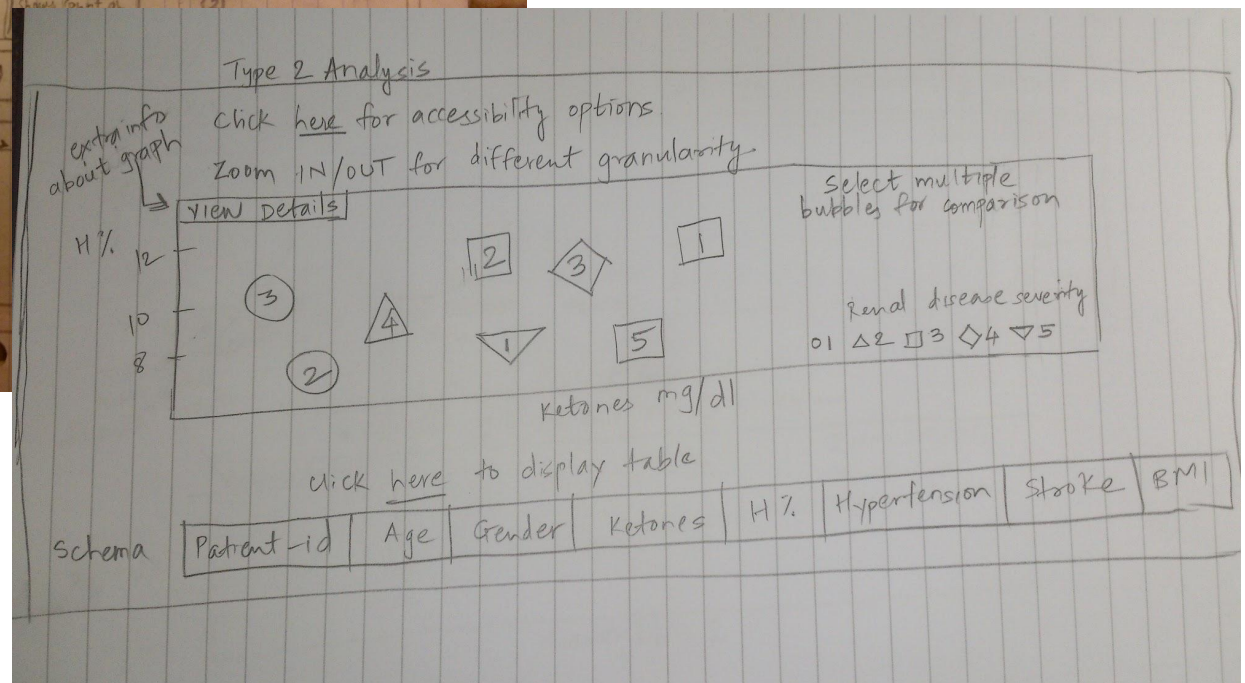 Type 2 Analysis
Click here for accessibility options.
Zoom IN/OUT for different granularity.
extra info
about graph
View Details
Select multiple
bubbles for comparison
H%
12
10
8
3
2
4
2
3
1
1
5
Renal disease severity
○1 △2 □3 ◇4 ▽5
Ketones mg/dl
Click here to display table
Schema
Patient-id Age Gender Ketones H% Hypertension Stroke BMI